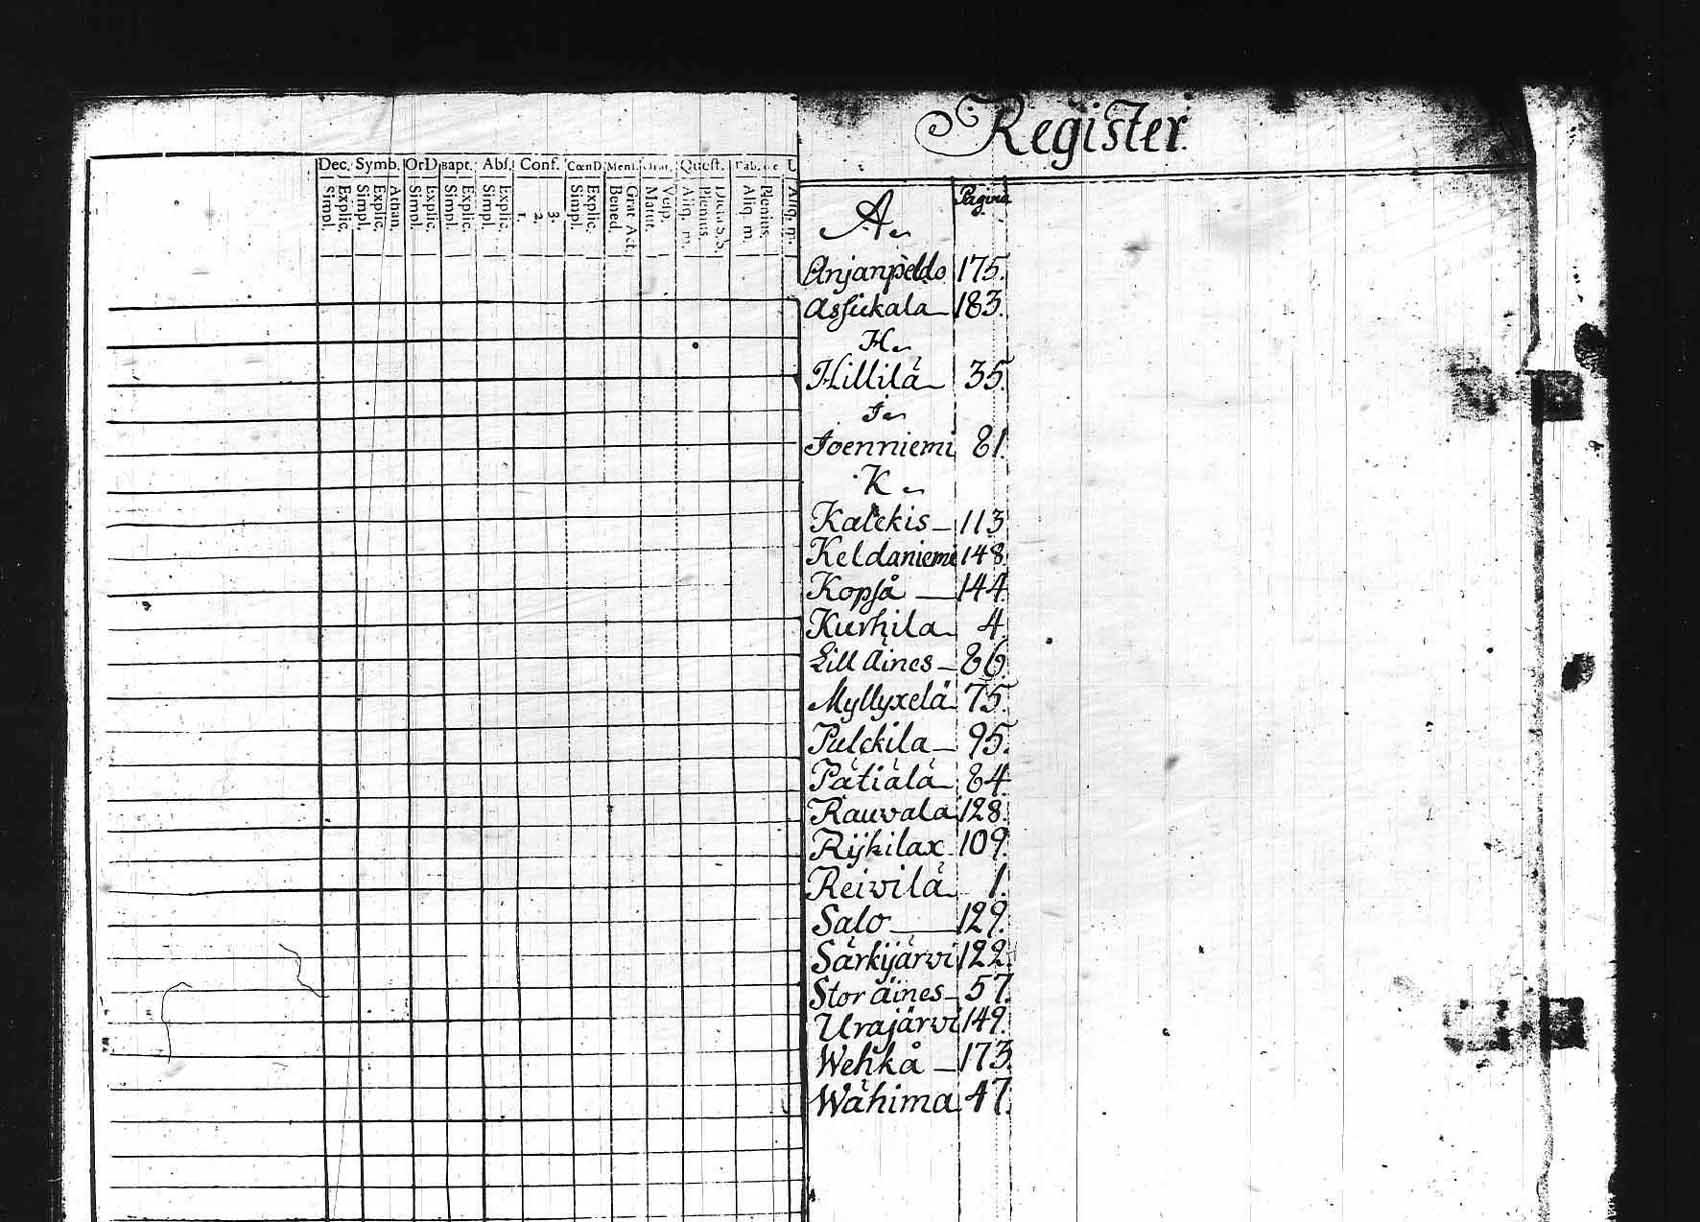 Register
Dec. Symb. OrD Bapt. Abs. Conf. CœnD Mens. Quest.
Simpl. Explic. Simpl. Explic. Athan. Simpl. Explic. Simpl. Explic. Simpl. Explic. 1. 2. 3. Simpl. Explic. Bened. Grat. Act. Matut. Vesp. Aliq. m. Plenius. Aliq. m. Plenius. Aliq. m.
A. Pagina
Anjanpeldo 175.
Assickala 183.
H.
Hillilä 35.
J.
Joenniemi 81.
K.
Kalckis 113
Keldaniemi 148
Kopså 144
Kurhila 4.
Lill Äines 86.
Myllyxelä 75.
Pulckila 95.
Pätiälä 84
Rauvala 128.
Rijhilax 109.
Reivilä 1.
Salo 129.
Särkijärvi 122.
Stor äines 57.
Urajärvi 149.
Wehkå 173
Wähima 47.